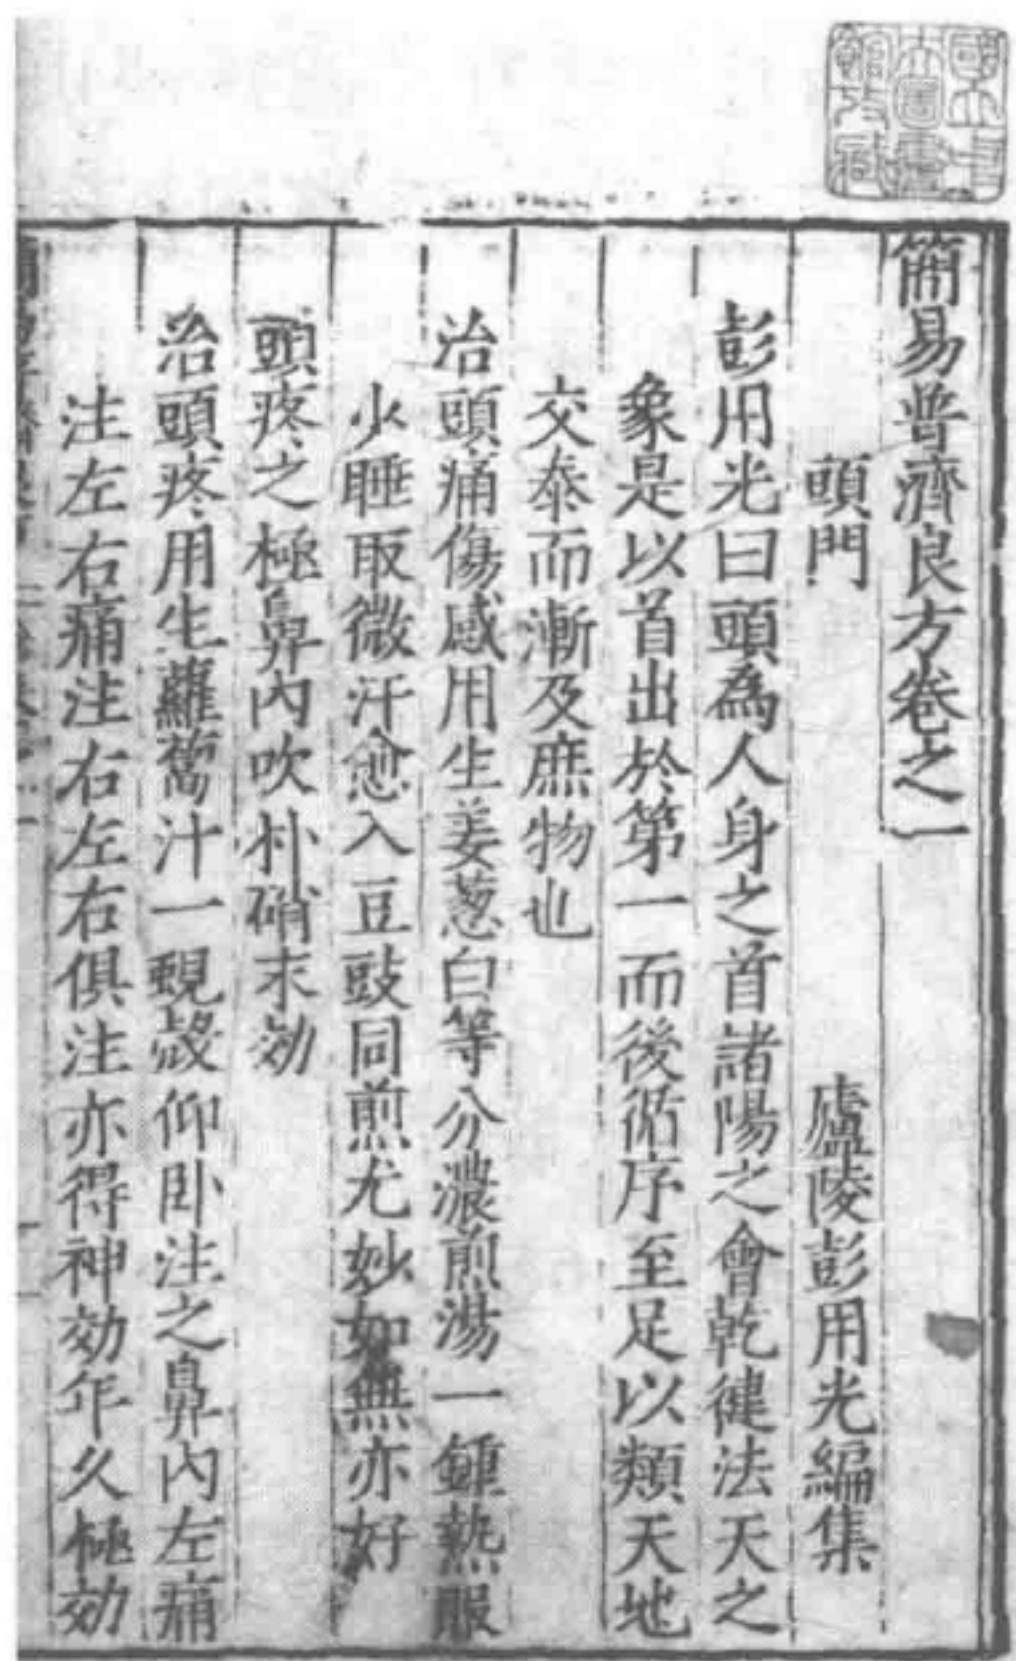 簡易普濟良方卷之一
頭門
廬陵彭用光編集
彭用光曰頭為人身之首諸陽之會乾健法天之
象是以首出於第一而後循序至足以類天地
交泰而漸及庶物也
治頭痛傷感用生姜葱白等分濃煎湯一鍾熱服
少睡取微汗愈入豆豉同煎尤妙如無亦好
頭疼之極鼻內吹朴硝末効
治頭疼用生蘿蔔汁一蜆殼仰卧注之鼻內左痛
注左右痛注右左右俱注亦得神効年久極効